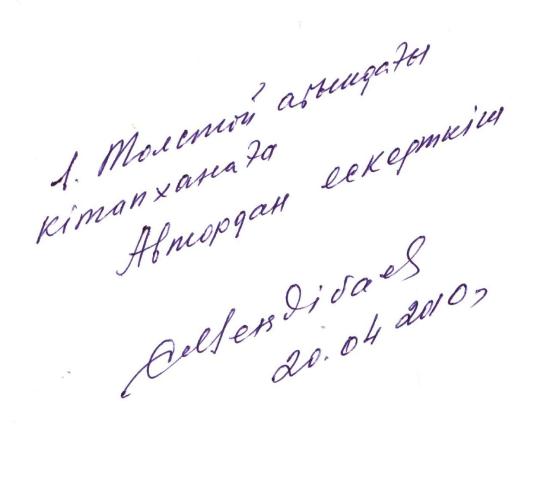 Л. Толстой атындағы
кітапханаға
Автордан ескерткіш
Мендібаев
20.04 2010,